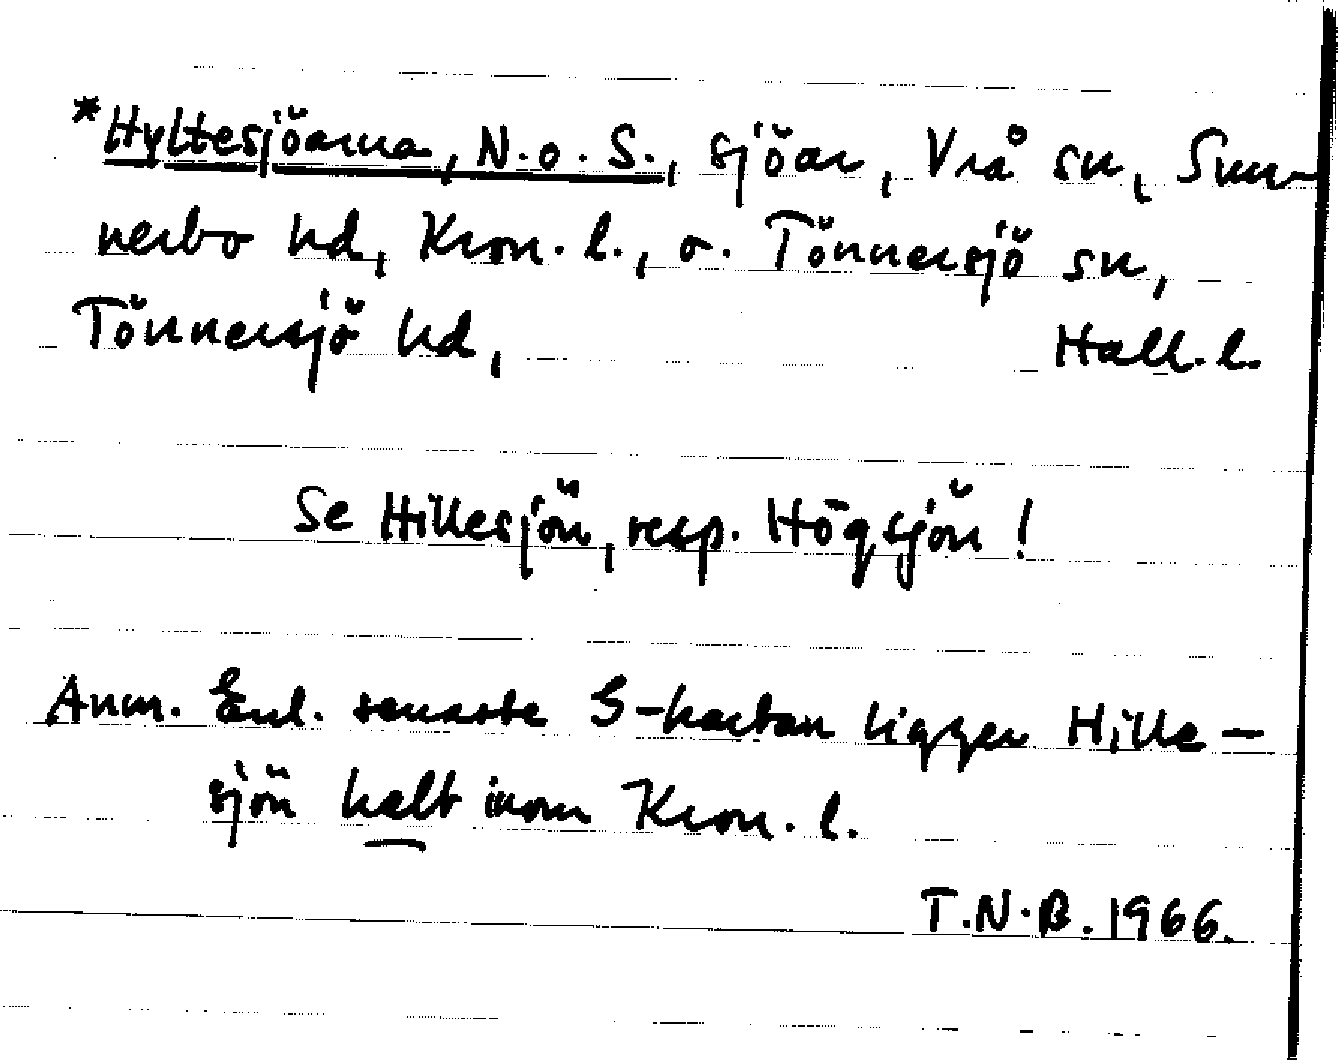 *Hyltesjöarna, N. o. S., sjöar, Vrå sn, Sun-
nerbo hd, Kron. l., o. Tönnersjö sn,
Tönnersjö hd, Hall. l.
Se Hillesjön, resp. Högsjön!
Anm. Enl. senaste G-kartan ligger Hille-
sjön helt inom Kron. l.
T.N.B. 1966.